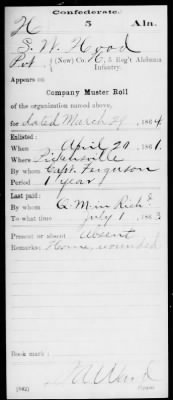 Confederate.
H 5 Ala.
S. W. Hood
Pvt. (New) Co. H, 5 Reg't Alabama
Infantry.
Appears on
Company Muster Roll
of the organization named above,
for dated March 29, 1864
Enlisted:
When April 29, 1861.
Where Pickensville
By whom Capt. Ferguson
Period 1 year
Last paid:
By whom Q. M. in Rich'd
To what time July 1, 1863
Present or absent Absent
Remarks: Home, wounded
Book mark:
(642)